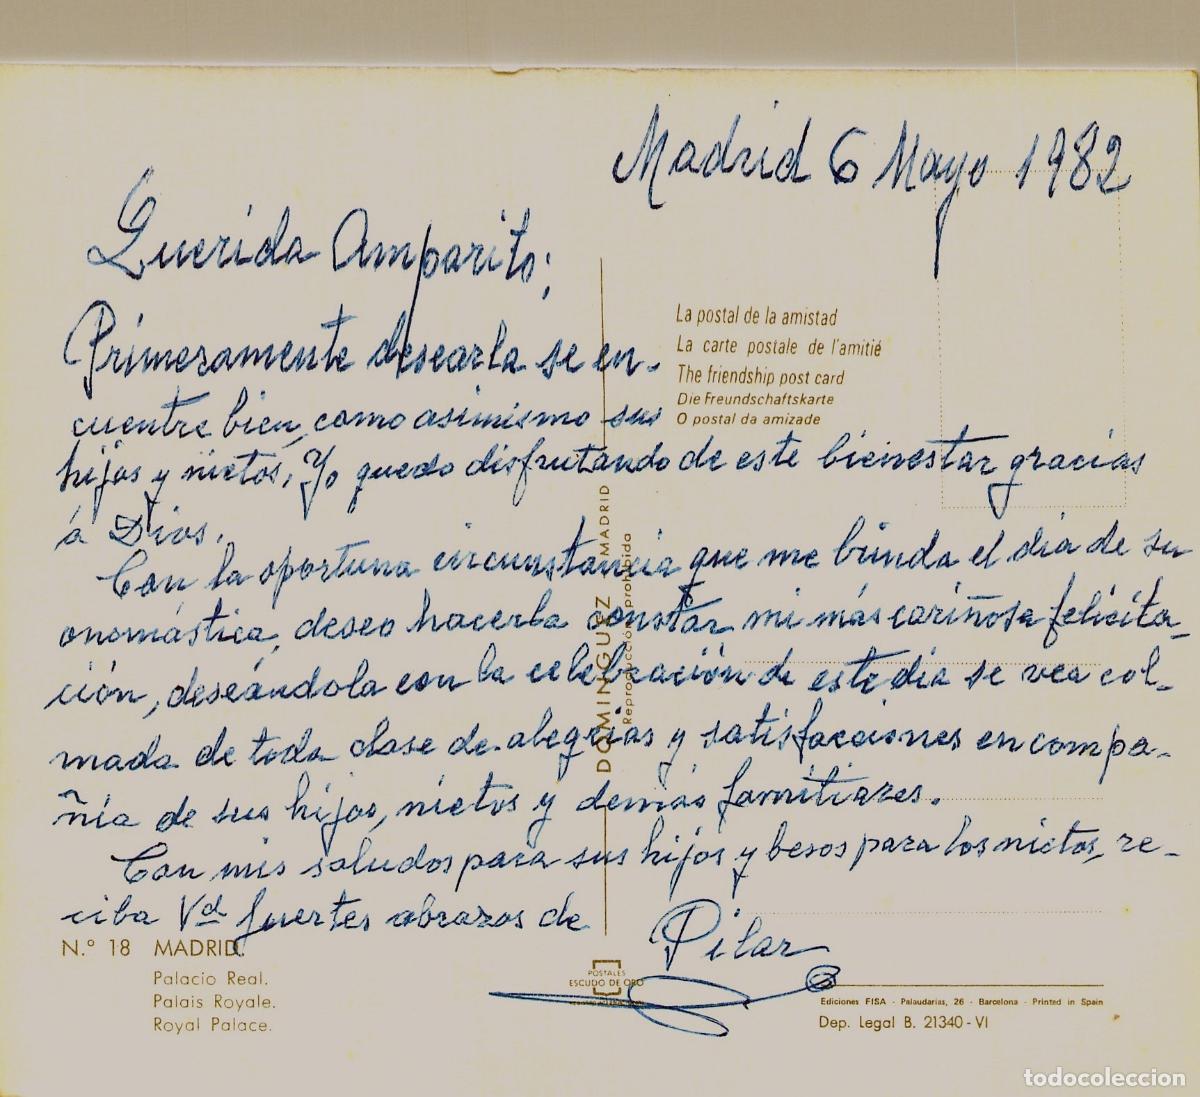 Madrid 6 Mayo 1982
Querida Amparito;
Primeramente desearla se en-
cuentre bien, como asimismo sus
hijos y nietos, Yo quedo disfrutando de este bienestar gracias
á Dios.
Con la oportuna circunstancia que me brinda el dia de su
onomástica, deseo hacerla constar mi más cariñosa felicita-
ción, deseándola con la celebración de este dia se vea col-
mada de toda clase de alegrias y satisfacciones en compa-
ñia de sus hijos, nietos y demás familiares.
Con mis saludos para sus hijos y besos para los nietos, re-
ciba Vd fuertes abrazos de
Pilar
La postal de la amistad
La carte postale de l'amitié
The friendship post card
Die Freundschaftskarte
O postal da amizade
DOMINGUEZ - MADRID
Reproducción prohibida
N.º 18 MADRID.
Palacio Real.
Palais Royale.
Royal Palace.
POSTALES
ESCUDO DE ORO
Ediciones FISA - Palaudarias, 26 - Barcelona - Printed in Spain
Dep. Legal B. 21340-VI
todocoleccion